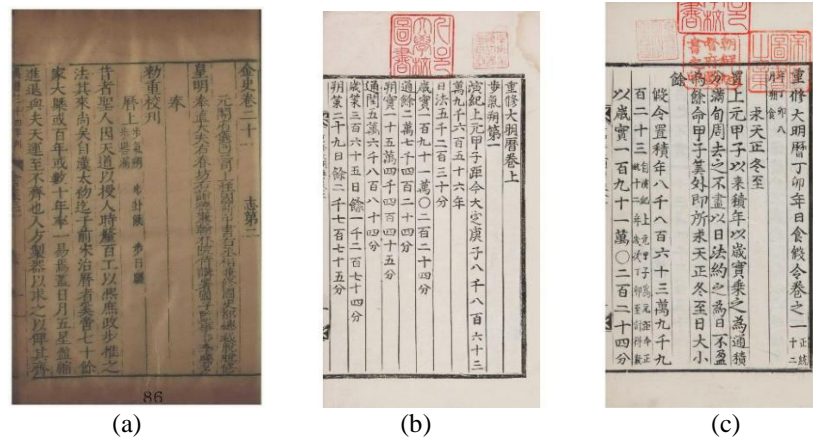 金史卷二十一 志第二
皇明奉直大夫
奉
勑重校刊
曆上 步氣朔 步卦候 步日躔
昔者聖人因天道以授人時釐百工以熙庶政步推之
法其來尚矣自漢太初迄于前宋治曆者奚啻七十餘
家大槩或百年或數十年率一易焉蓋日月五星盈縮
進退與夫天運至不齊也人方製器以求之以俾其齊
86
(a)
重修大明曆卷上
步氣朔第一
演紀上元甲子距今大定庚子八千八百六十三
萬九千六百五十六年
日法五千二百三十分
歲實一百九十一萬〇二百二十四分
通餘二萬七千四百二十四分
朔實一十五萬四千四百四十五分
通閏五萬六千八百八十四分
歲策三百六十五日餘一千二百七十四分
朔策二十九日餘二千七百七十五分
(b)
重修大明曆丁卯年日食假令卷之一 正統十二
求天正冬至
置上元甲子以來積年以歲實乘之為通積
分滿旬周去之不盡以日法約之為日不盈
為餘命甲子筭外即所求天正冬至日大小
餘
假令置積年八千八百六十三萬九千九
百二十三
以歲實一百九十一萬〇二百二十四分
(c)